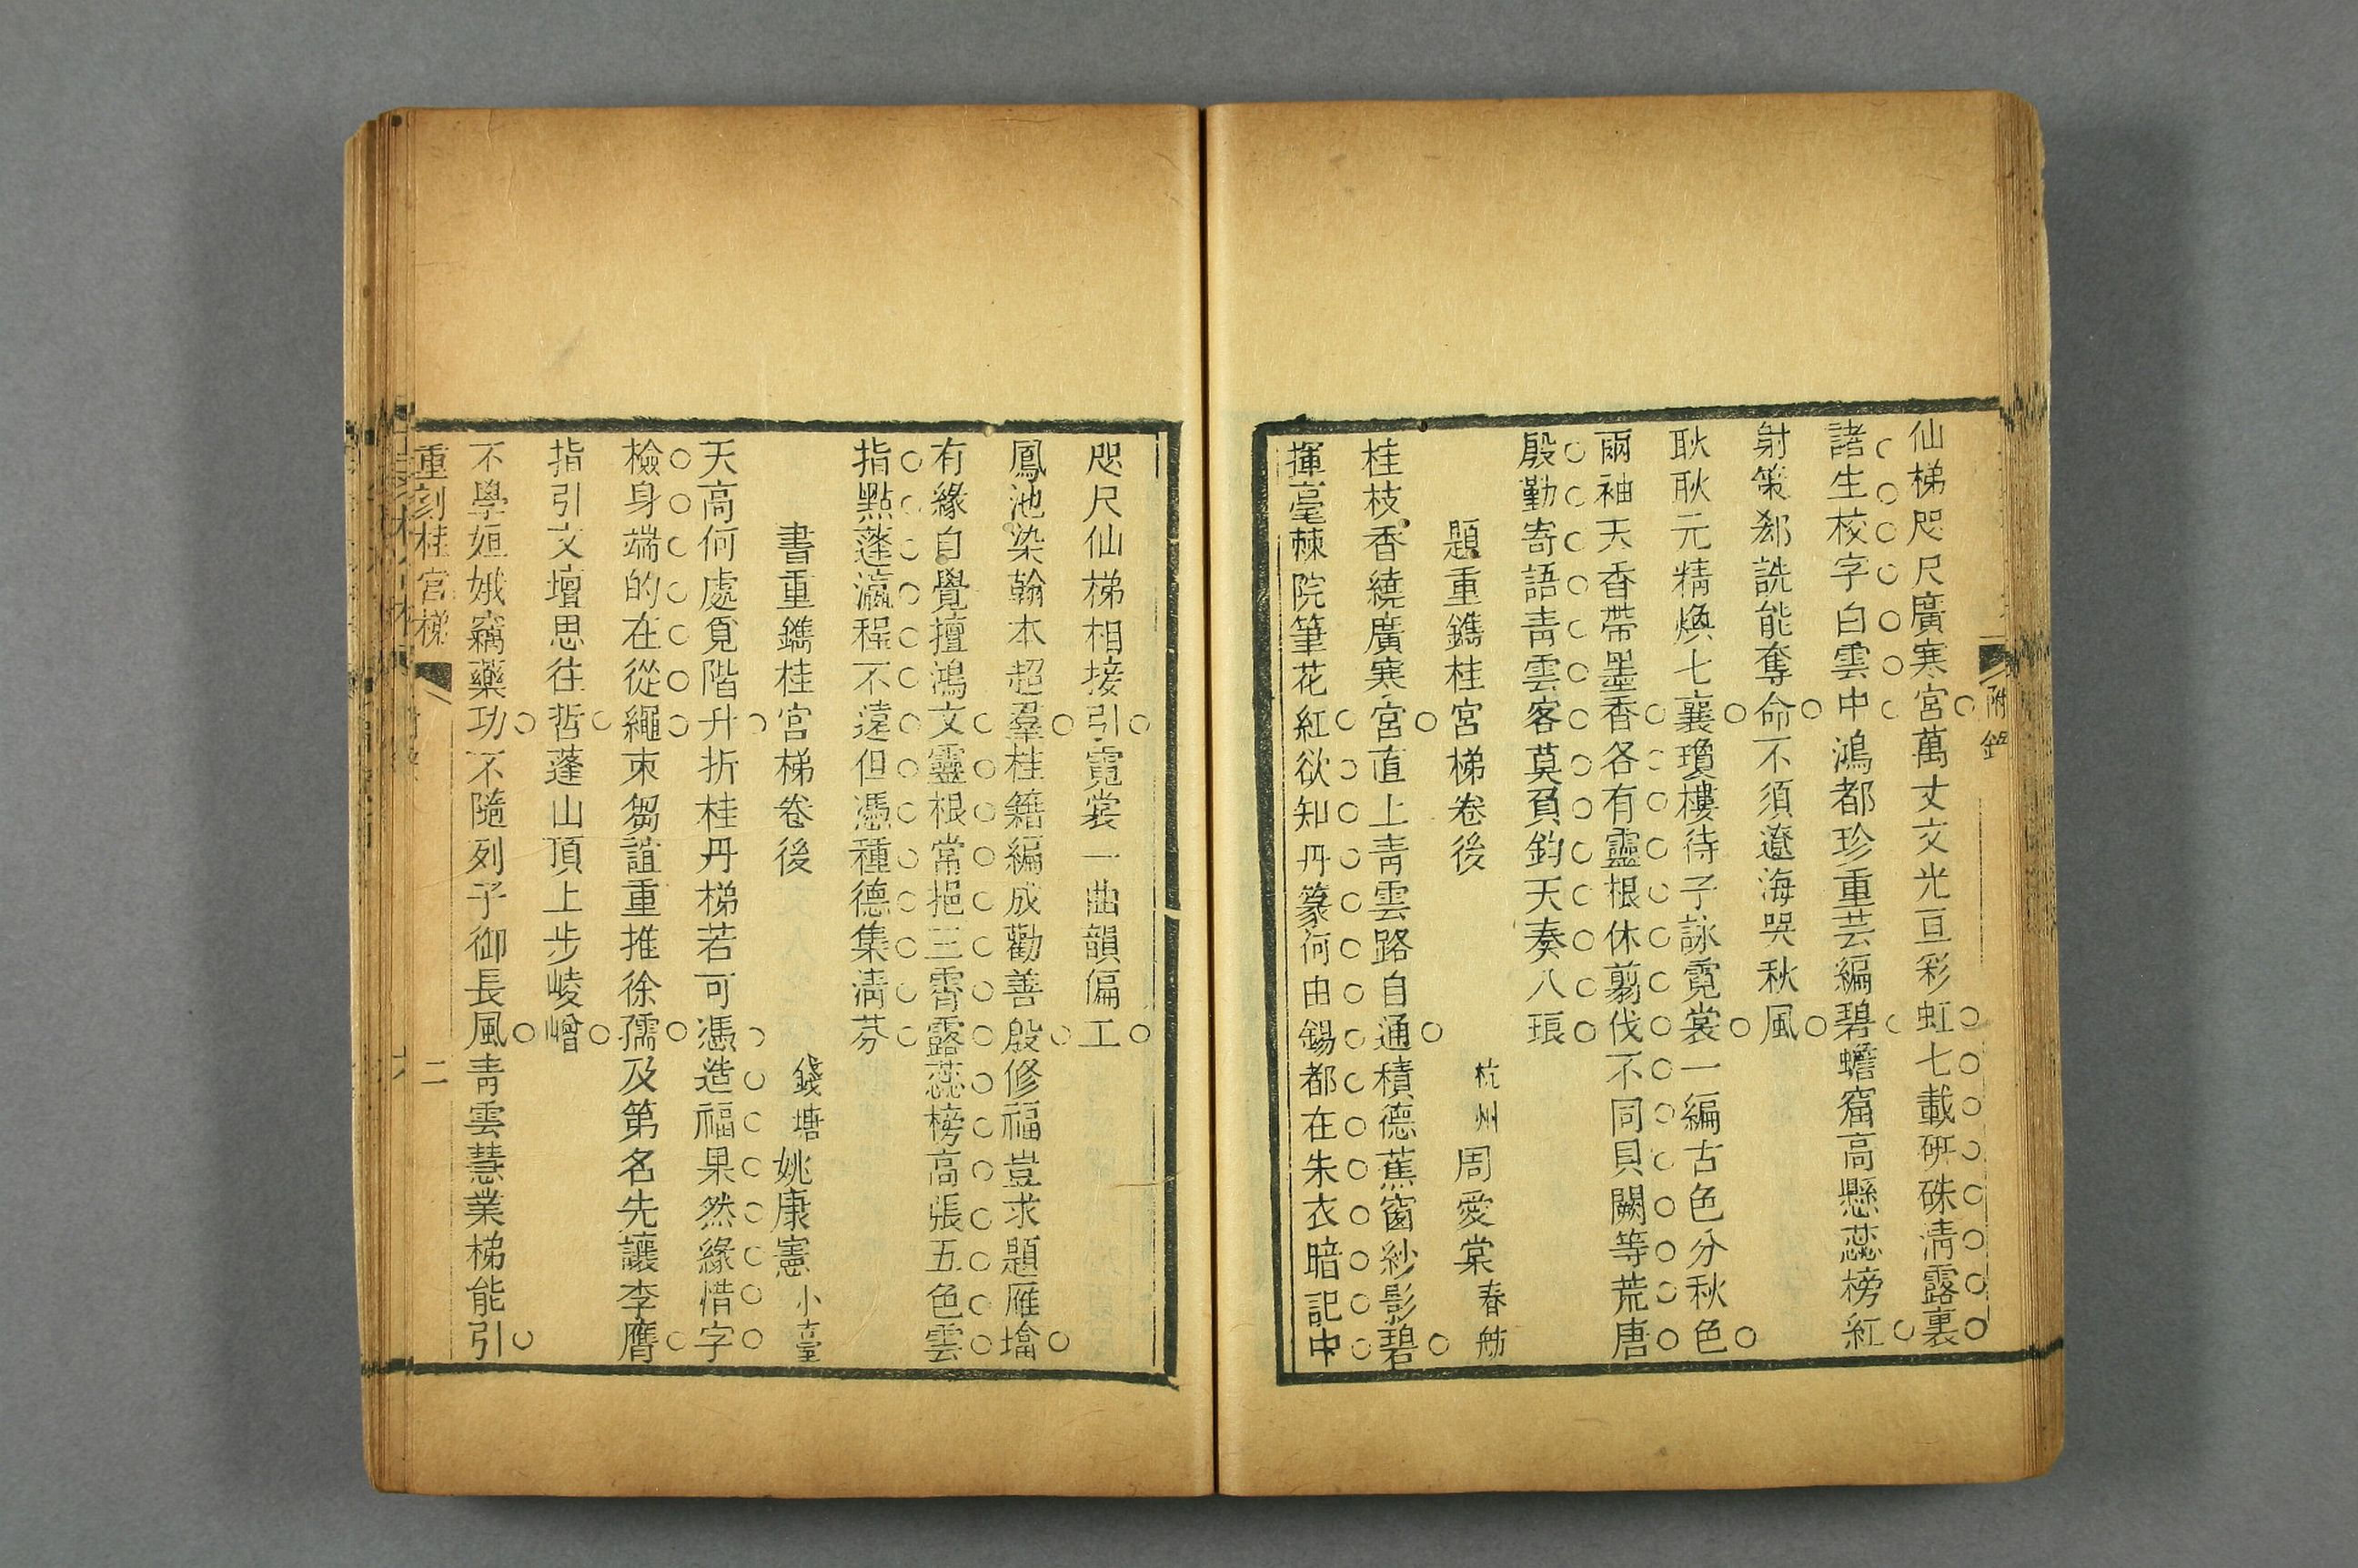 附錄
仙梯咫尺廣寒宮萬丈文光亘彩虹七載研硃清露裏
諸生校字白雲中鴻都珍重芸編碧蟾窟高懸蕊榜紅
射策郄詵能奪命不須遼海哭秋風
耿耿元精煥七襄瓊樓待子詠霓裳一編古色分秋色
兩袖天香帶墨香各有靈根休翦伐不同貝闕等荒唐
殷勤寄語青雲客莫負鈞天奏八琅
題重鐫桂宮梯卷後 杭州周愛棠春舫
桂枝香繞廣寒宮直上青雲路自通積德蕉窗紗影碧
揮毫棘院筆花紅欲知丹篆何由錫都在朱衣暗記中
咫尺仙梯相接引霓裳一曲韻偏工
鳳池染翰本超羣桂籍編成勸善殷修福豈求題雁墖
有緣自覺擅鴻文靈根常挹三霄露蕊榜高張五色雲
指點蓬瀛程不遠但憑種德集清芬
書重鐫桂宮梯卷後 錢塘姚康憲小臺
天高何處覓階升折桂丹梯若可憑造福果然緣惜字
檢身端的在從繩束芻誼重推徐孺及第名先讓李膺
指引文壇思往哲蓬山頂上步崚嶒
不學姮娥竊藥功不隨列子御長風青雲慧業梯能引
重刻桂宮梯 二